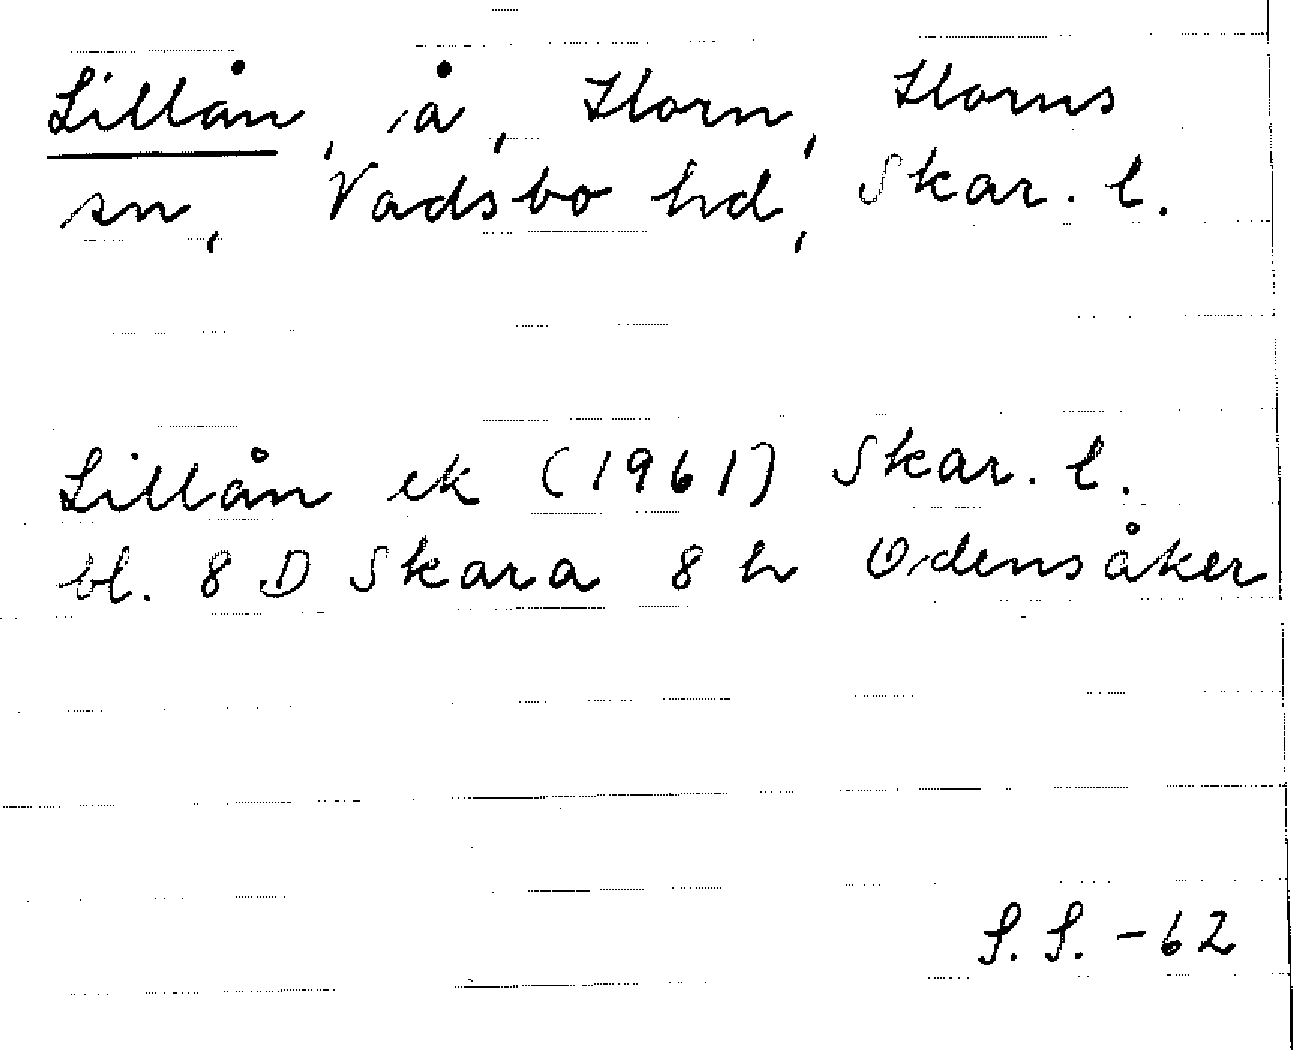 Lillån, å, Horn, Horns
sn, Vadsbo hd, Skar. l.
Lillån ek (1961) Skar. l.
bl. 8 D Skara 8 h Odensåker
S. S. -62